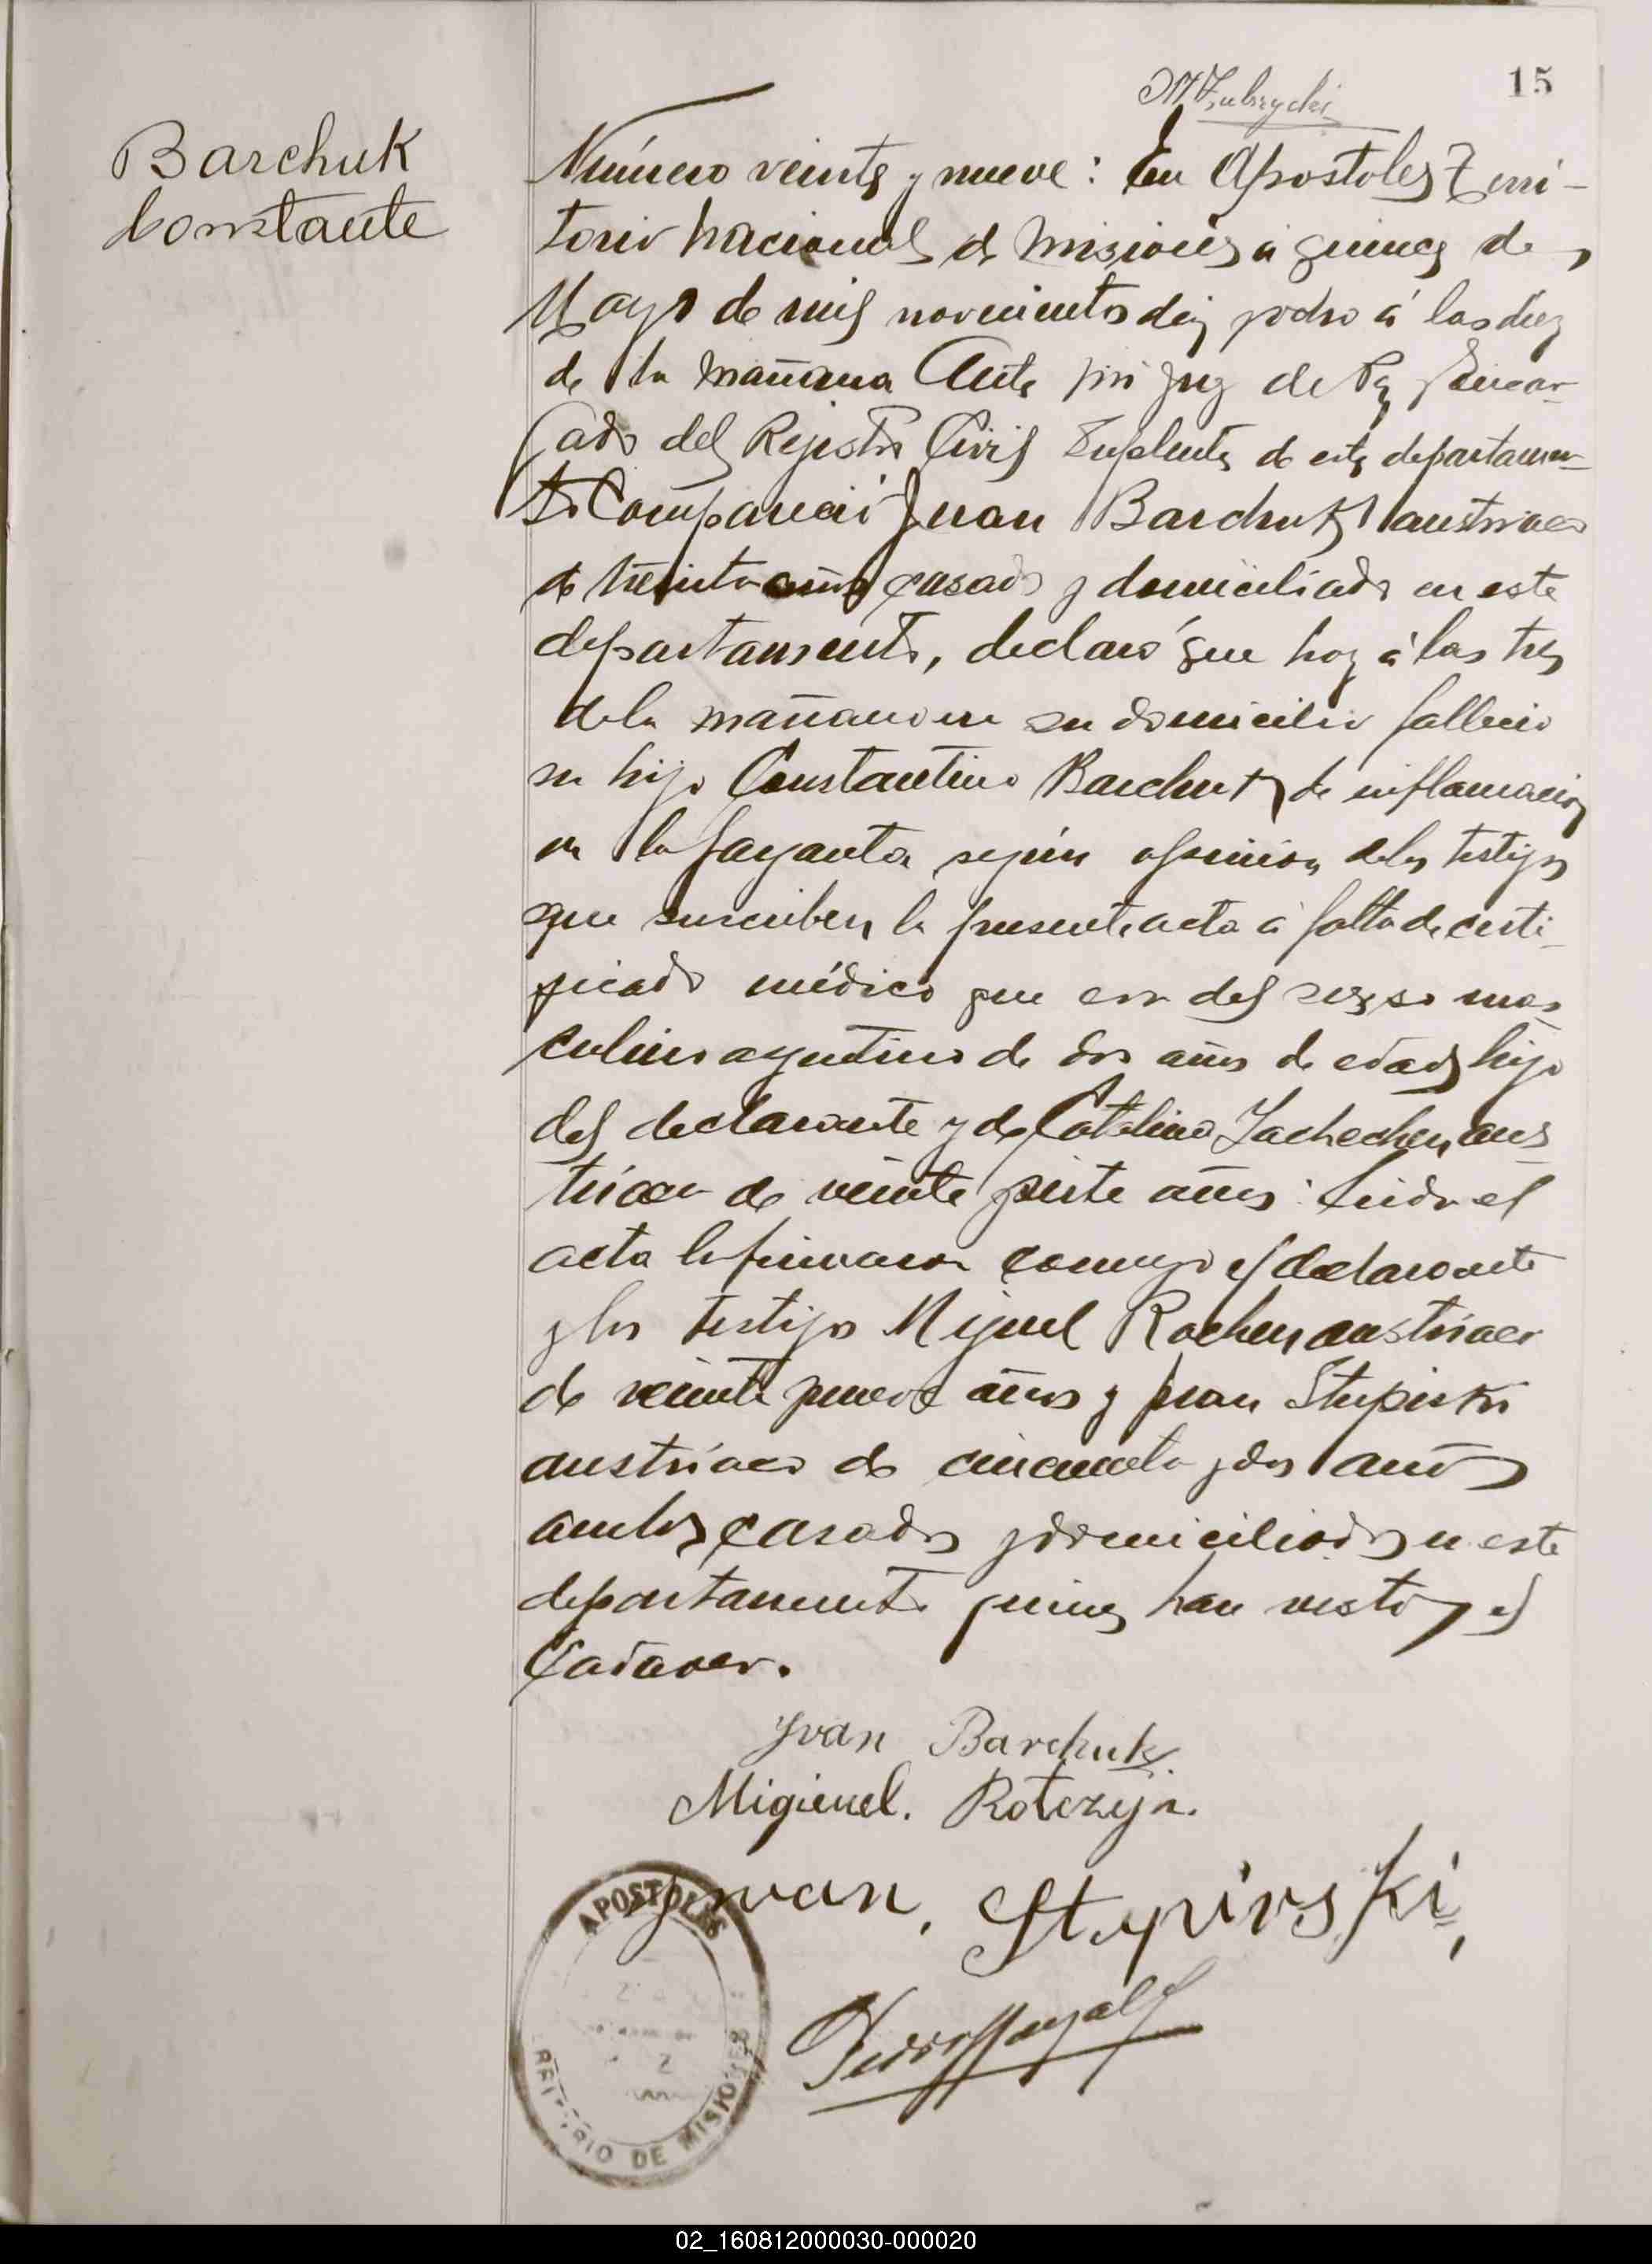 15
M Zubrzycki
Barchuk
Constante
Número veinte y nueve: En Apostoles Terri-
torio Nacional de Misiones á quince de
Mayo de mil novecientos diez y ocho á las diez
de la mañana Ante mi Juez de Paz y Encar-
gado del Rejistro Civil Suplente de este departamen-
to Compareció Juan Barchuk austriaco
de treinta años casado y domiciliado en este
departamento, declaró que hoy á las tres
de la mañana en su domicilio fallecio
su hijo Constantino Barchuk de inflamacion
en la garganta según opinion de los testigos
que suscriben la presente acta á falta de certi-
ficado médico que era del sexso mas-
culino argentino de dos años de edad hijo
del declarante y de Catalina Jachechen aus-
triaca de veinte y siete años: Leida el
acta la firmaron conmigo el declarante
y los testigos Miguel Rochen austriaco
de veinte y nueve años y Juan Stupinski
austríaco de cincuenta y dos años
ambos casados y domiciliados en este
departamento quienes han visto el
Cadaver.
Yvan Barchuk
Migieuel. Rotczyn.
Jwan, Stypirski,
APOSTOLES
TERRITORIO DE MISIONES
02_160812000030-000020